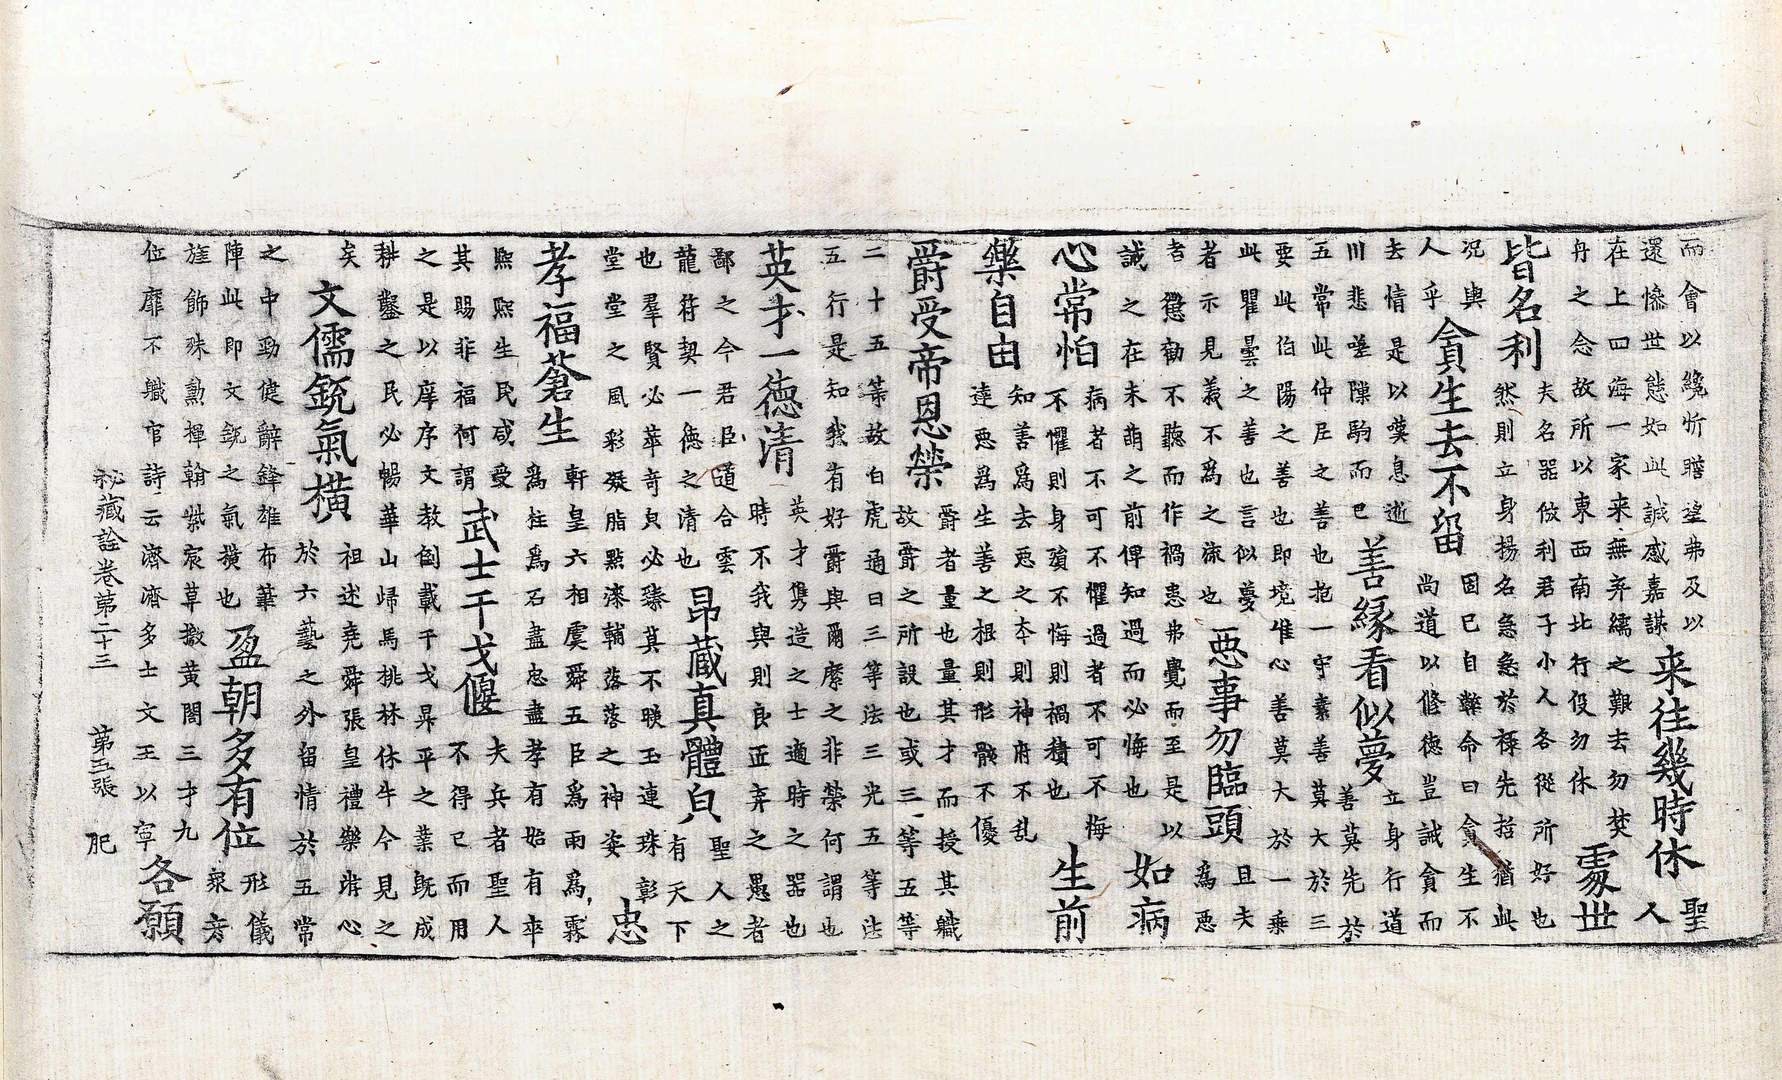 而會以纔忻瞻望弗及以
還慘世態如此誡感嘉謀
来往幾時休
聖
人
在上四海一家来無弃繻之艱去勿焚
舟之念故所以東西南北行伇勿休
處世
皆名利
夫名器伇利君子小人各從所好也
然則立身揚名急急於禄先捨猶此
况與
人乎
貪生去不留
固已自鞸命曰貪生不
尚道以修德豈誡貪而
去情是以嘆息逝
川悲嗟隟駒而已
善緣看似夢
立身行道
善莫先於
五常此仲尼之善也抱一守素善莫大於三
要此伯陽之善也即境惟心善莫大於一乗
此瞿曇之善也言似夢
者示見義不為之深也
惡事勿臨頭
且夫
為惡
者懲勸不聽而作禍患弗覺而至是以
誡之在未萌之前俾知過而必悔也
如病
心常怕
病者不可不懼過者不可不悔
不懼則身殞不悔則禍積也
生前
樂自由
知善為去惡之夲則神府不乱
達惡為生善之根則形骸不優
爵受帝恩榮
爵者量也量其才而授其軄
故爵之所設也或三等五等
二十五等故白虎通曰三等法三光五等法
五行是知我有好爵與爾縻之非榮何謂也
英才一德清
英才雋造之士適時之器也
時不我與則良亚弃之愚者
鄙之今君臣道合雲
龍符契一德之清也
昂藏真體皃
聖人之
有天下
也羣賢必萃奇皃必臻莫不睒玉連珠彰
堂堂之風彩凝脂點漆輔落落之神姿
忠
孝福蒼生
軒皇六相虞舜五臣為雨為霖
為柱為石盡忠盡孝有始有卒
熙熙生民咸受
其賜非福何謂
武士干戈偃
夫兵者聖人
不得已而用
之是以庠序文教創載干戈昇平之業既成
耕鑿之民必暢華山歸馬桃林休牛今見之
矣
文儒銳氣橫
祖述堯舜張皇禮樂游心
於六藝之外留情於五常
之中勁健辭鋒雄布華
陣此即文銳之氣橫也
盈朝多有位
形儀
衆旁
旌飾殊勳揮翰紫宸草檄黄閤三才九
位靡不軄官詩云濟濟多士文王以寧
各願
秘藏詮卷第二十三　第五張　肥